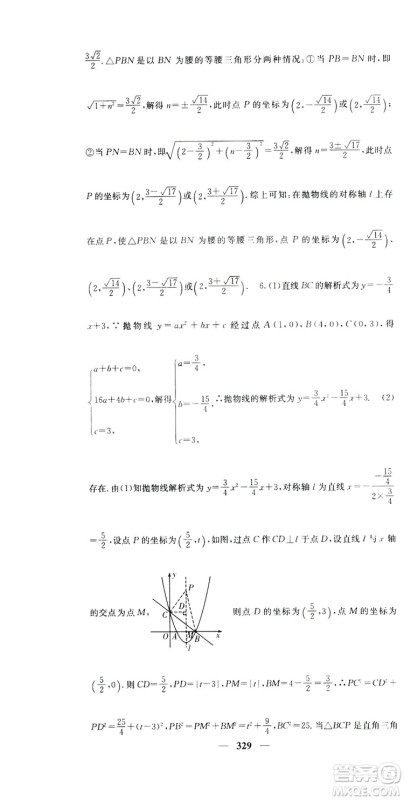 $\frac{3\sqrt{2}}{2}$. △PBN 是以 BN 为腰的等腰三角形分两种情况:①当 PB=BN 时,即
$\sqrt{1+n^2}=\frac{3\sqrt{2}}{2}$,解得 $n=\pm\frac{\sqrt{14}}{2}$,此时点 P 的坐标为$\left(2,\frac{\sqrt{14}}{2}\right)$或$\left(2,-\frac{\sqrt{14}}{2}\right)$;
②当 PN=BN 时,即$\sqrt{\left(2-\frac{3}{2}\right)^2+\left(n-\frac{3}{2}\right)^2}=\frac{3\sqrt{2}}{2}$,解得 $n=\frac{3\pm\sqrt{17}}{2}$,此时点
P 的坐标为$\left(2,\frac{3-\sqrt{17}}{2}\right)$或$\left(2,\frac{3+\sqrt{17}}{2}\right)$.综上可知:在抛物线的对称轴 l 上存
在点 P,使△PBN 是以 BN 为腰的等腰三角形,点 P 的坐标为$\left(2,-\frac{\sqrt{14}}{2}\right)$、
$\left(2,\frac{\sqrt{14}}{2}\right)$、$\left(2,\frac{3-\sqrt{17}}{2}\right)$或$\left(2,\frac{3+\sqrt{17}}{2}\right)$. 6.(1)直线 BC 的解析式为 $y=-\frac{3}{4}$
x+3,∵ 抛物线 y=ax²+bx+c 经过点 A(1,0),B(4,0),C(0,3),得
$\begin{cases}a+b+c=0,\\16a+4b+c=0,\\c=3,\end{cases}$解得$\begin{cases}a=\frac{3}{4},\\b=-\frac{15}{4},\\c=3,\end{cases}$∴抛物线的解析式为 $y=\frac{3}{4}x^2-\frac{15}{4}x+3$. (2)
存在.由(1)知抛物线解析式为 $y=\frac{3}{4}x^2-\frac{15}{4}x+3$,对称轴 l 为直线 $x=-\frac{-\frac{15}{4}}{2\times\frac{3}{4}}$
$=\frac{5}{2}$,设点 P 的坐标为$\left(\frac{5}{2},t\right)$,如图,过点 C 作 CD⊥l 于点 D,设直线 l 与 x 轴
的交点为点 M, y P C D O A M B x l 则点 D 的坐标为$\left(\frac{5}{2},3\right)$,点 M 的坐标为
$\left(\frac{5}{2},0\right)$.则 $CD=\frac{5}{2}$,PD=|t-3|,PM=|t|,$BM=4-\frac{5}{2}=\frac{3}{2}$,∴PC²=CD²
+$PD^2=\frac{25}{4}+(t-3)^2$,$PB^2=PM^2+BM^2=t^2+\frac{9}{4}$,BC²=25.当△BCP 是直角三角
329
答案圈
MXQE.COM